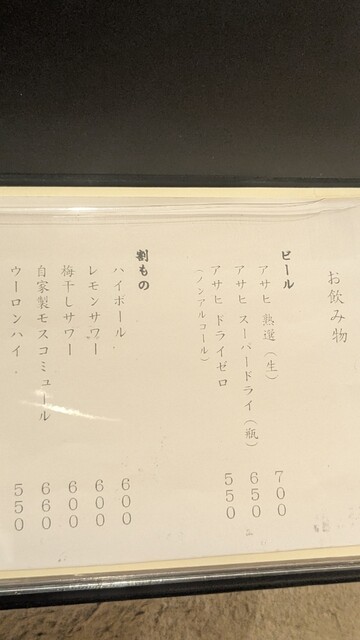 お飲み物
ビール
アサヒ 熟選（生） 700
アサヒ スーパードライ（瓶） 650
アサヒ ドライゼロ 550
（ノンアルコール）
割もの
ハイボール 600
レモンサワー 600
梅干しサワー 600
自家製モスコミュール 660
ウーロンハイ 550